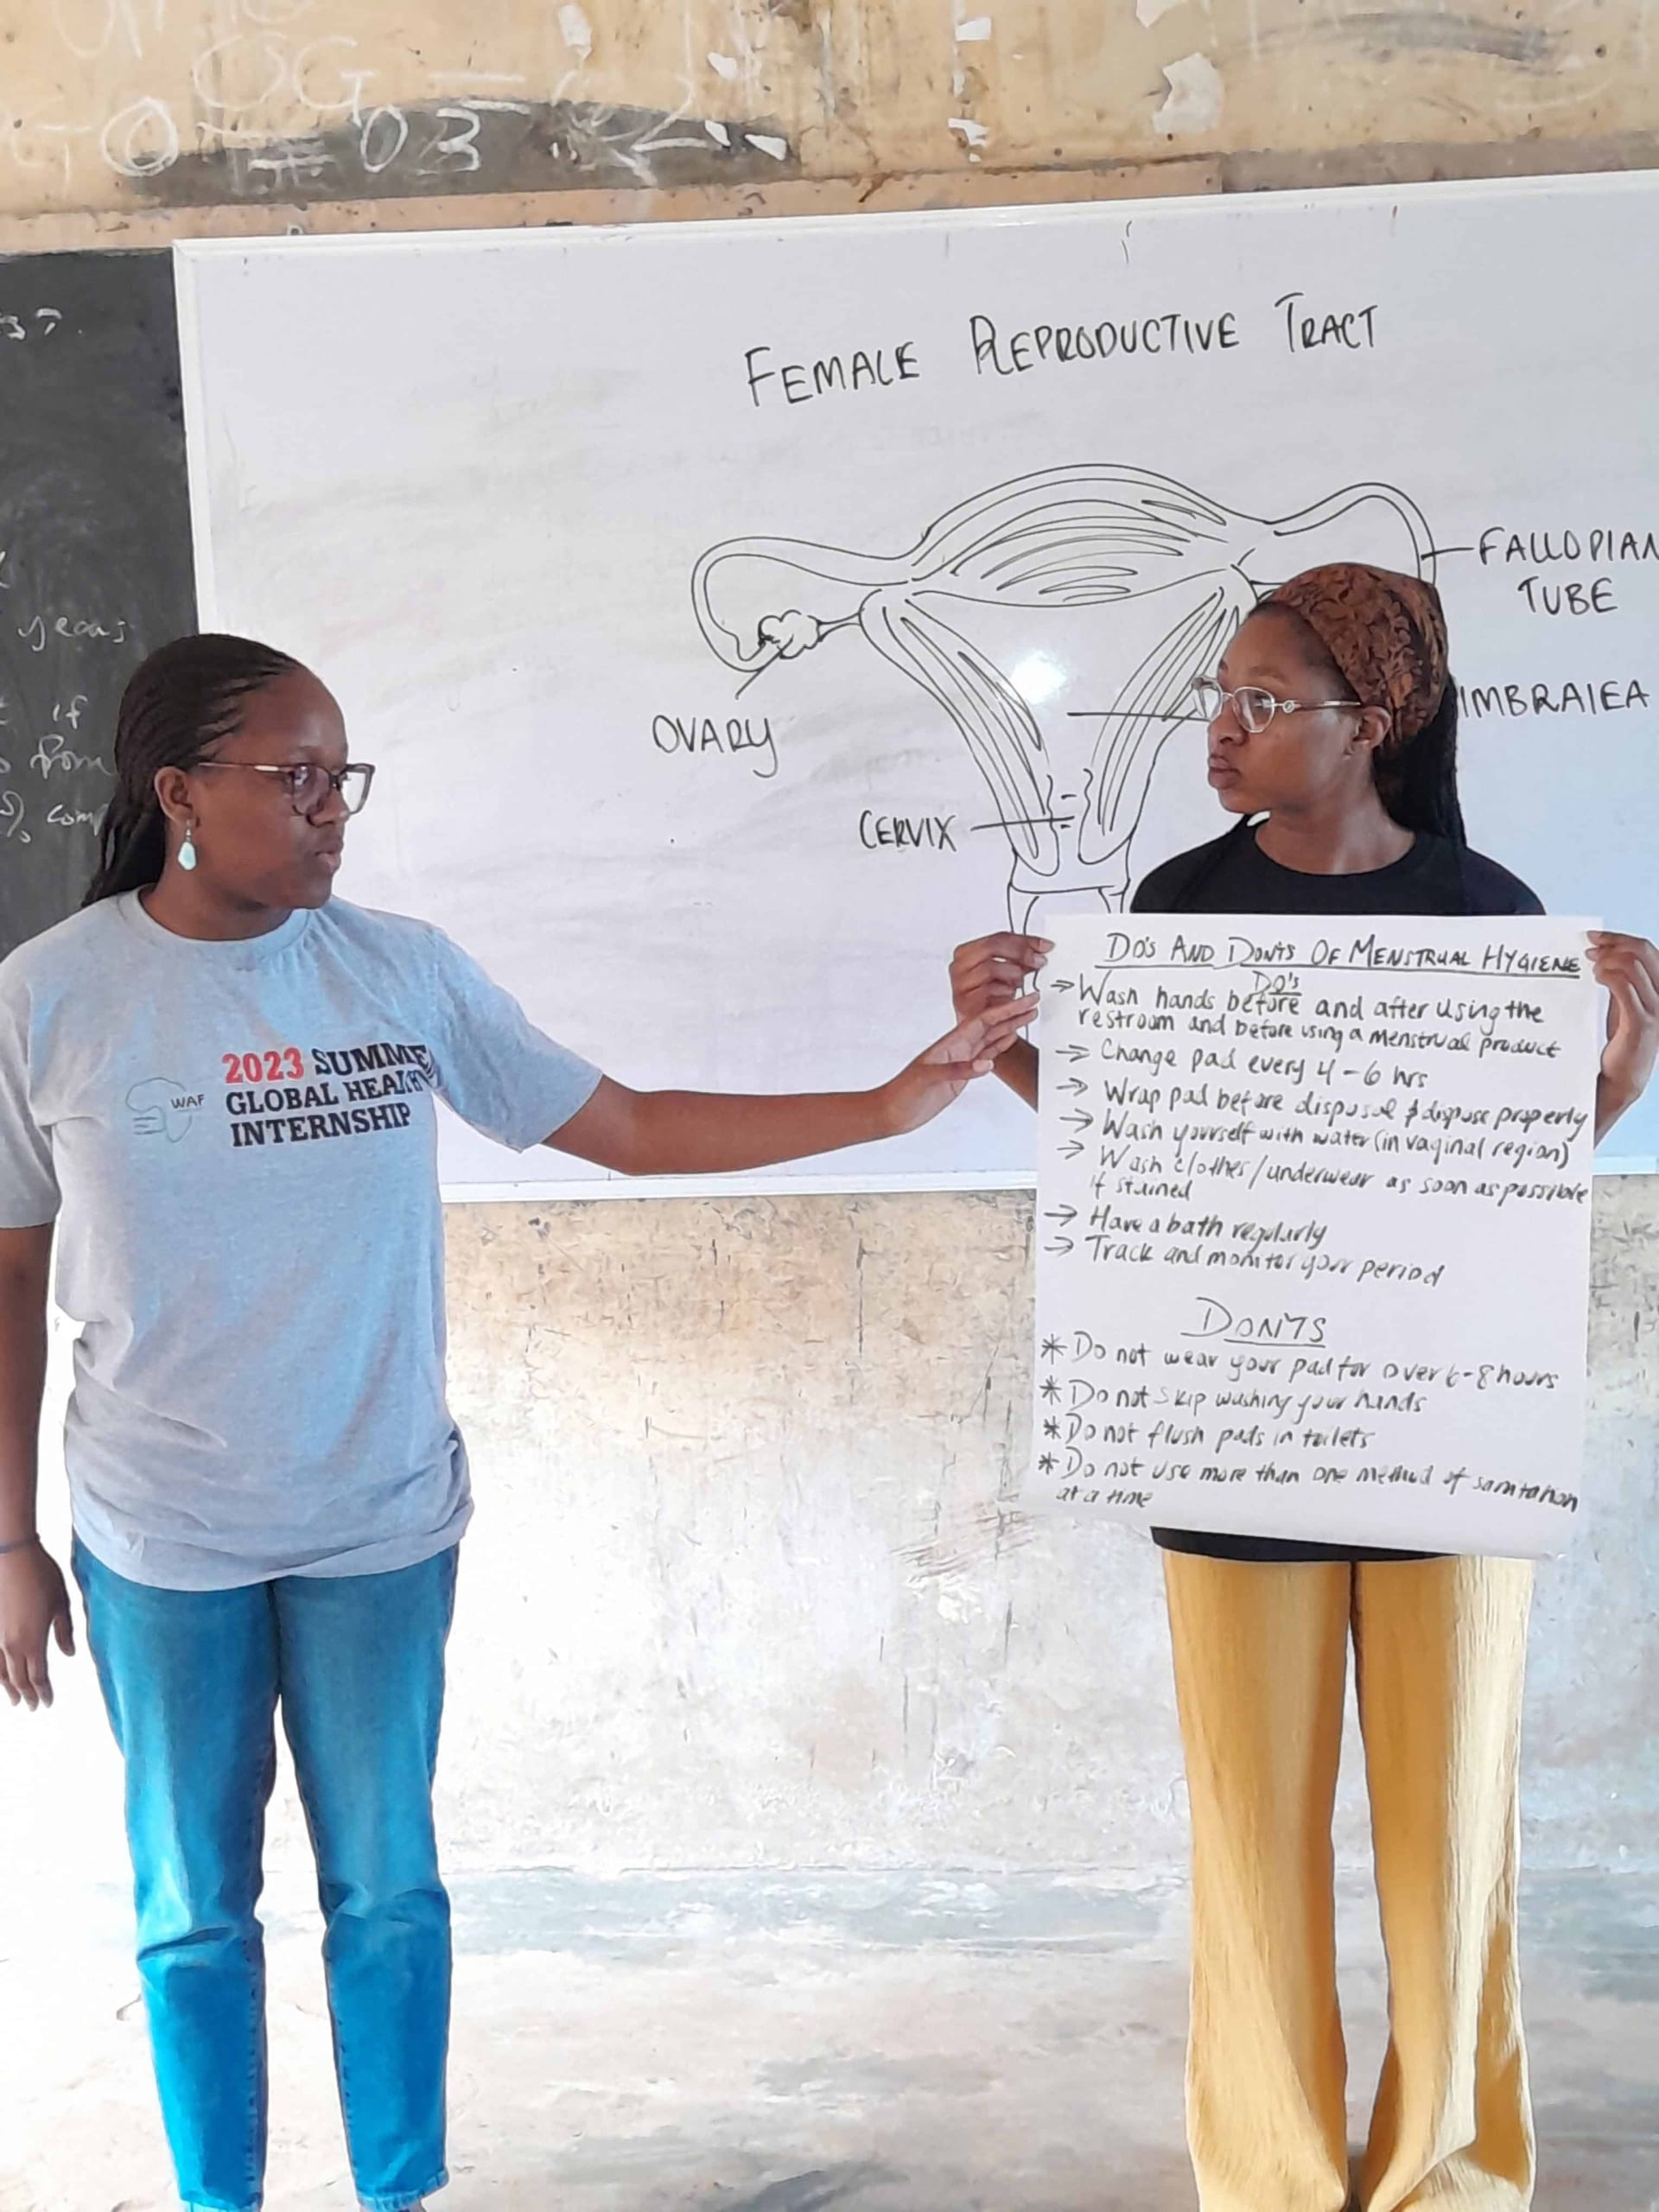 = 03
years
if
from
FEMALE REPRODUCTIVE TRACT
FALLOPIAN
TUBE
IMBRAIEA
OVARY
CERVIX
WAF
2023 SUMME
GLOBAL HEALTH
INTERNSHIP
DO'S AND DONTS OF MENSTRUAL HYGIENE
DO'S
→ Wash hands before and after using the
restroom and before using a menstrual product
→ Change pad every 4-6 hrs
→ Wrap pad before disposal & dispose properly
→ Wash yourself with water (in vaginal region)
→ Wash clothes/underwear as soon as possible
if stained
→ Have a bath regularly
→ Track and monitor your period
DONTS
* Do not wear your pad for over 6-8 hours
* Do not skip washing your hands
* Do not flush pads in toilets
* Do not use more than one method of sanitation
at a time